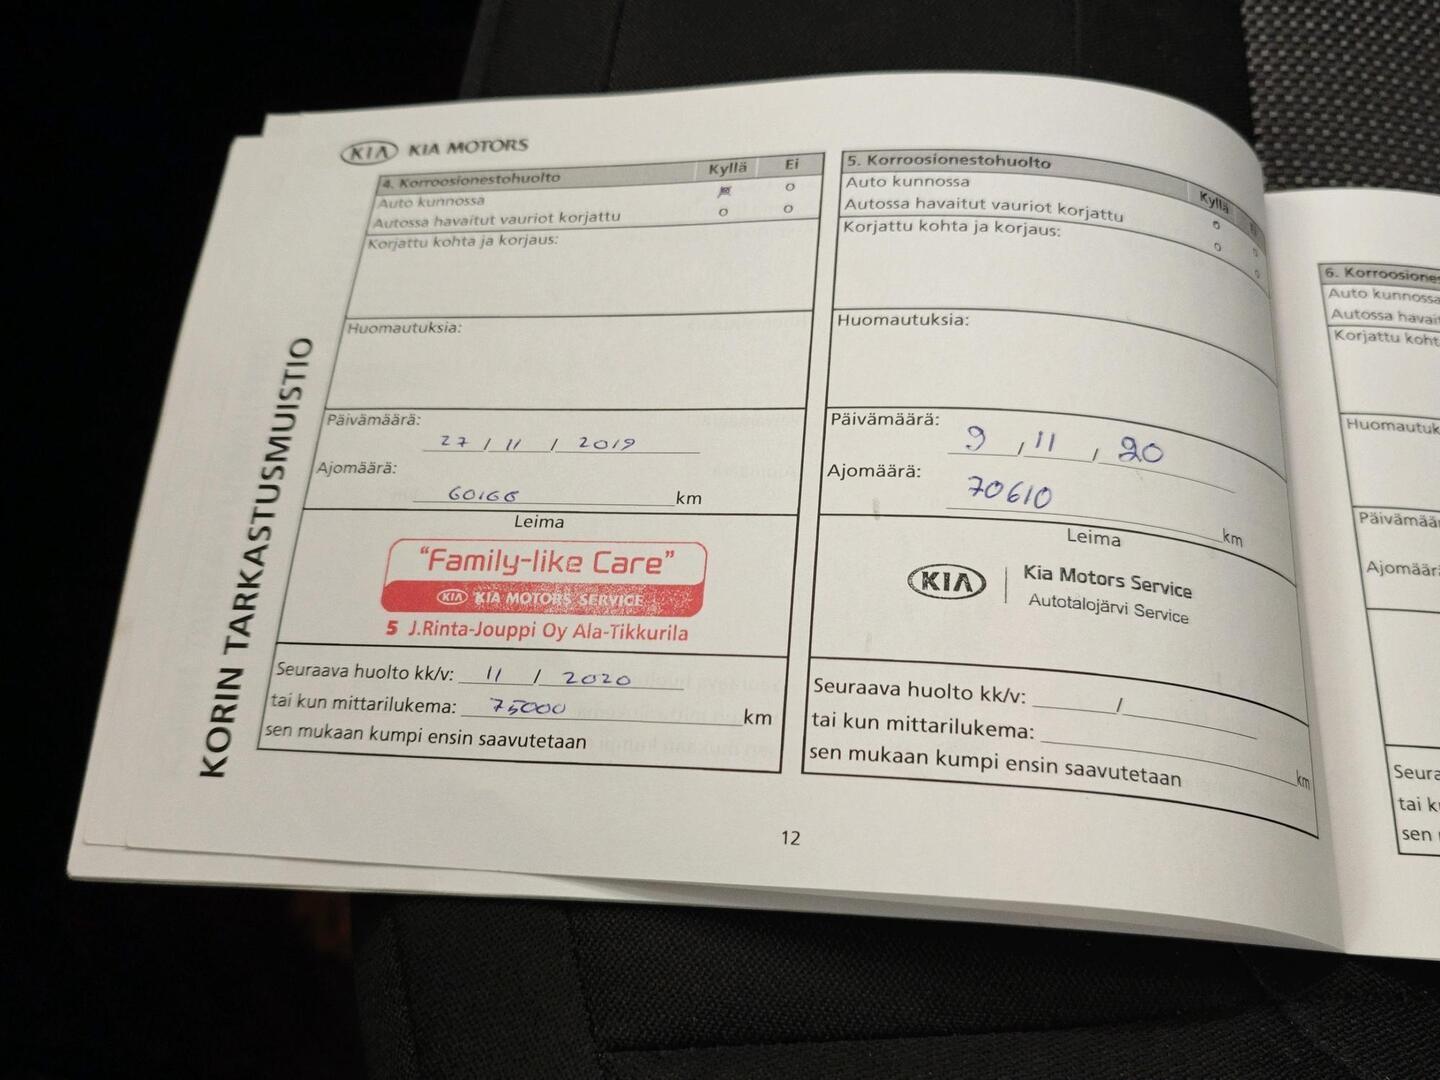 KIA KIA MOTORS
KORIN TARKASTUSMUISTIO
4. Korroosionestohuolto Kyllä Ei
Auto kunnossa o
Autossa havaitut vauriot korjattu o o
Korjattu kohta ja korjaus:
Huomautuksia:
Päivämäärä:
27 / 11 / 2019
Ajomäärä:
60166 km
Leima
"Family-like Care"
KIA KIA MOTORS SERVICE
5 J.Rinta-Jouppi Oy Ala-Tikkurila
Seuraava huolto kk/v: 11 / 2020
tai kun mittarilukema: 75000 km
sen mukaan kumpi ensin saavutetaan
5. Korroosionestohuolto Kyllä Ei
Auto kunnossa o o
Autossa havaitut vauriot korjattu o o
Korjattu kohta ja korjaus:
Huomautuksia:
Päivämäärä:
9 / 11 / 20
Ajomäärä:
70610 km
Leima
KIA Kia Motors Service
Autotalojärvi Service
Seuraava huolto kk/v: /
tai kun mittarilukema: km
sen mukaan kumpi ensin saavutetaan
12
6. Korroosiones
Auto kunnossa
Autossa havait
Korjattu koht
Huomautuk
Päivämäär
Ajomäär
Seura
tai k
sen